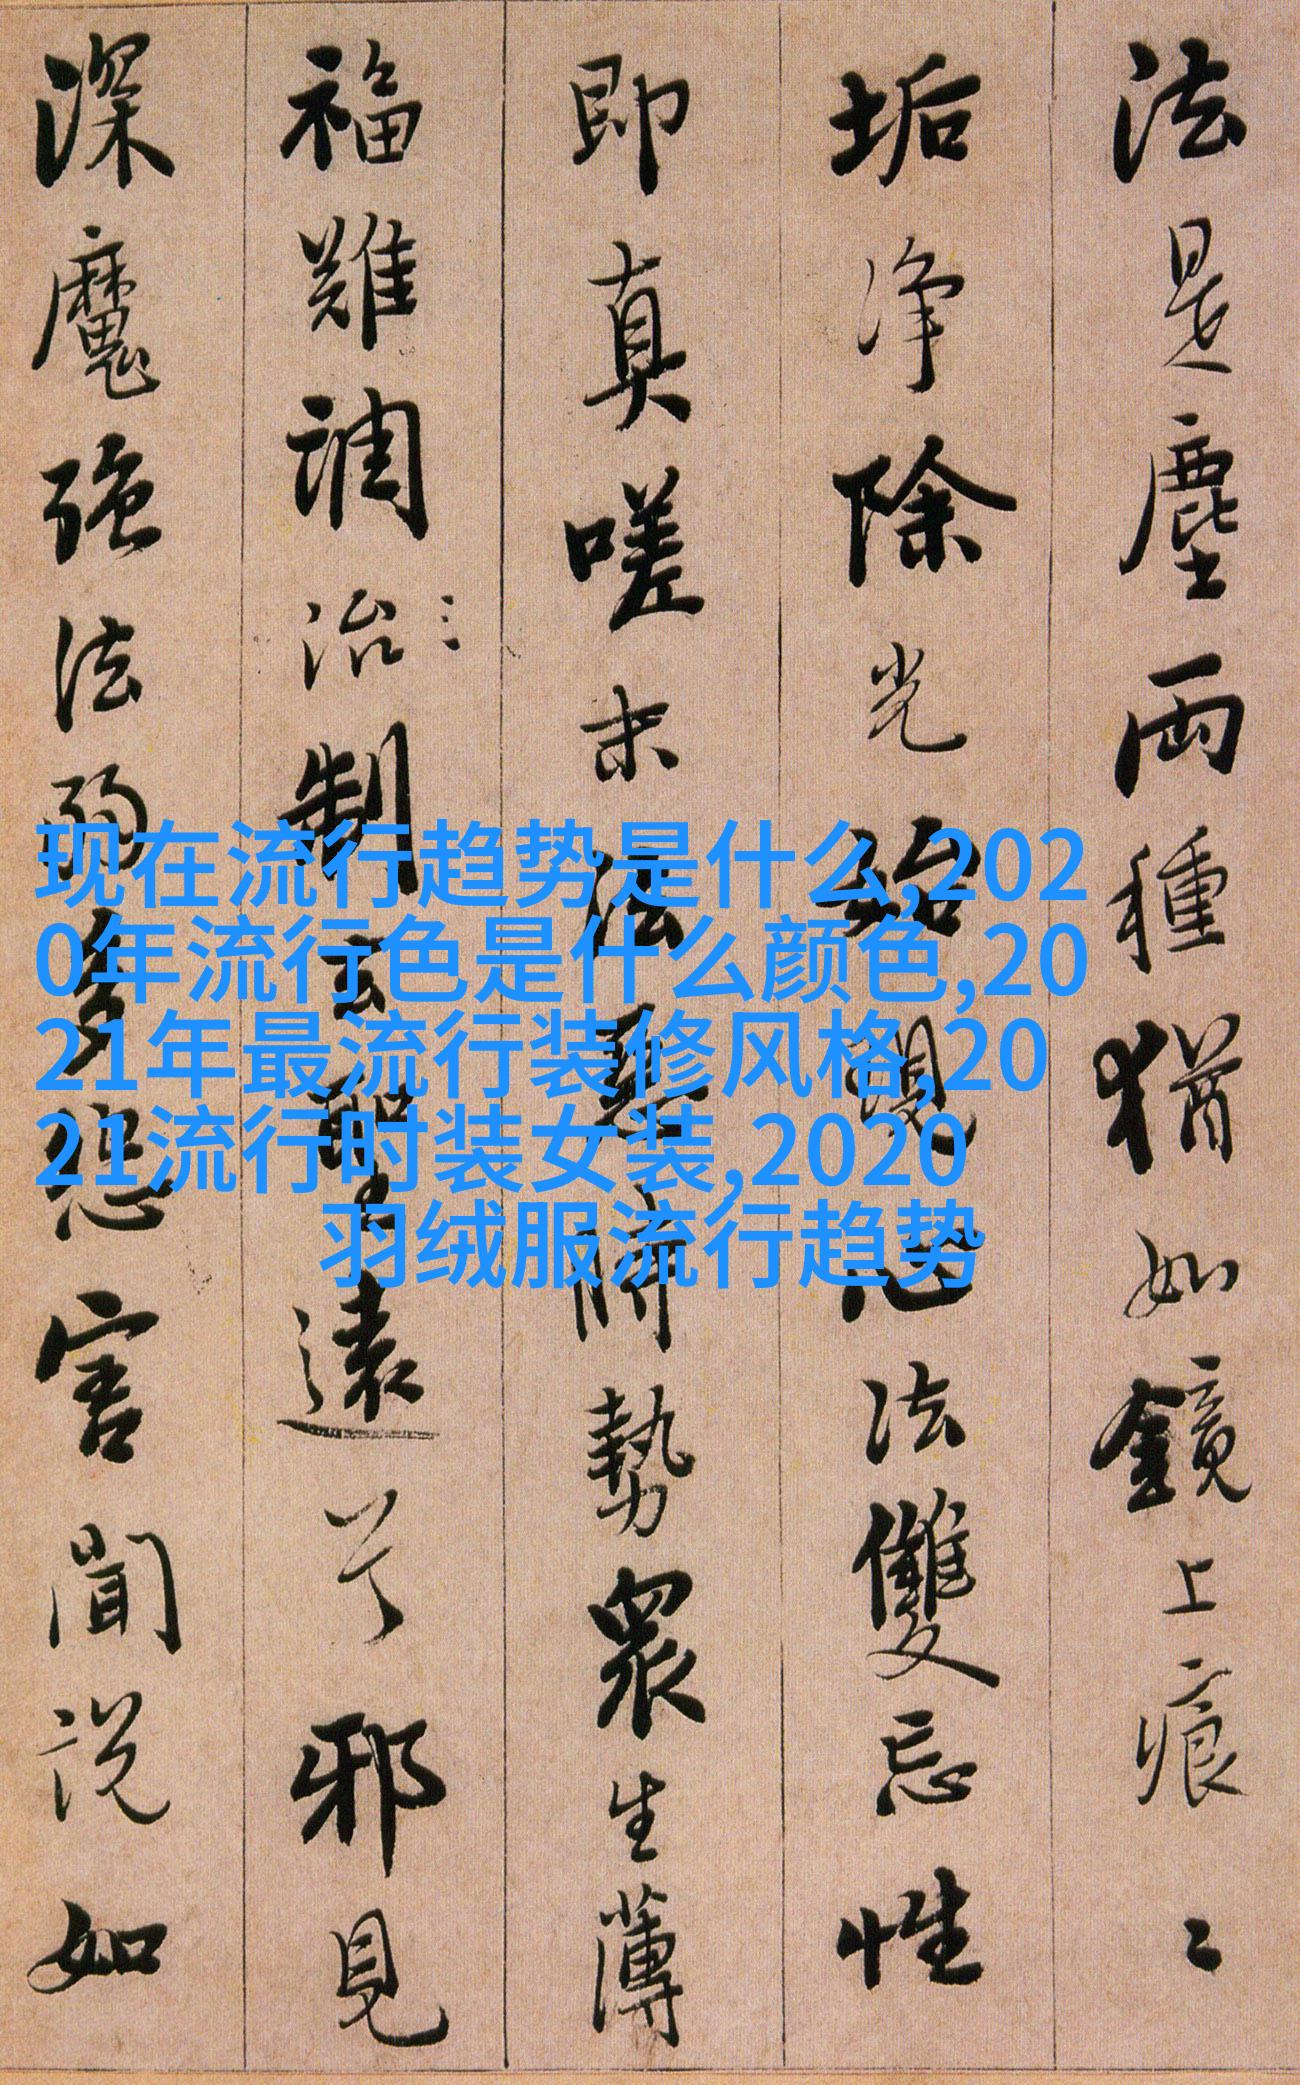 法是塵兩種猶如鏡上痕〻
垢淨除光始現心法雙忘性
即真嗟末法惡時勢眾生薄
福難調治制去聖遠兮邪見
深魔強法弱多怨害聞說如
现在流行趋势是什么,202
0年流行色是什么颜色,20
21年最流行装修风格,20
21流行时装女装,2020
羽绒服流行趋势